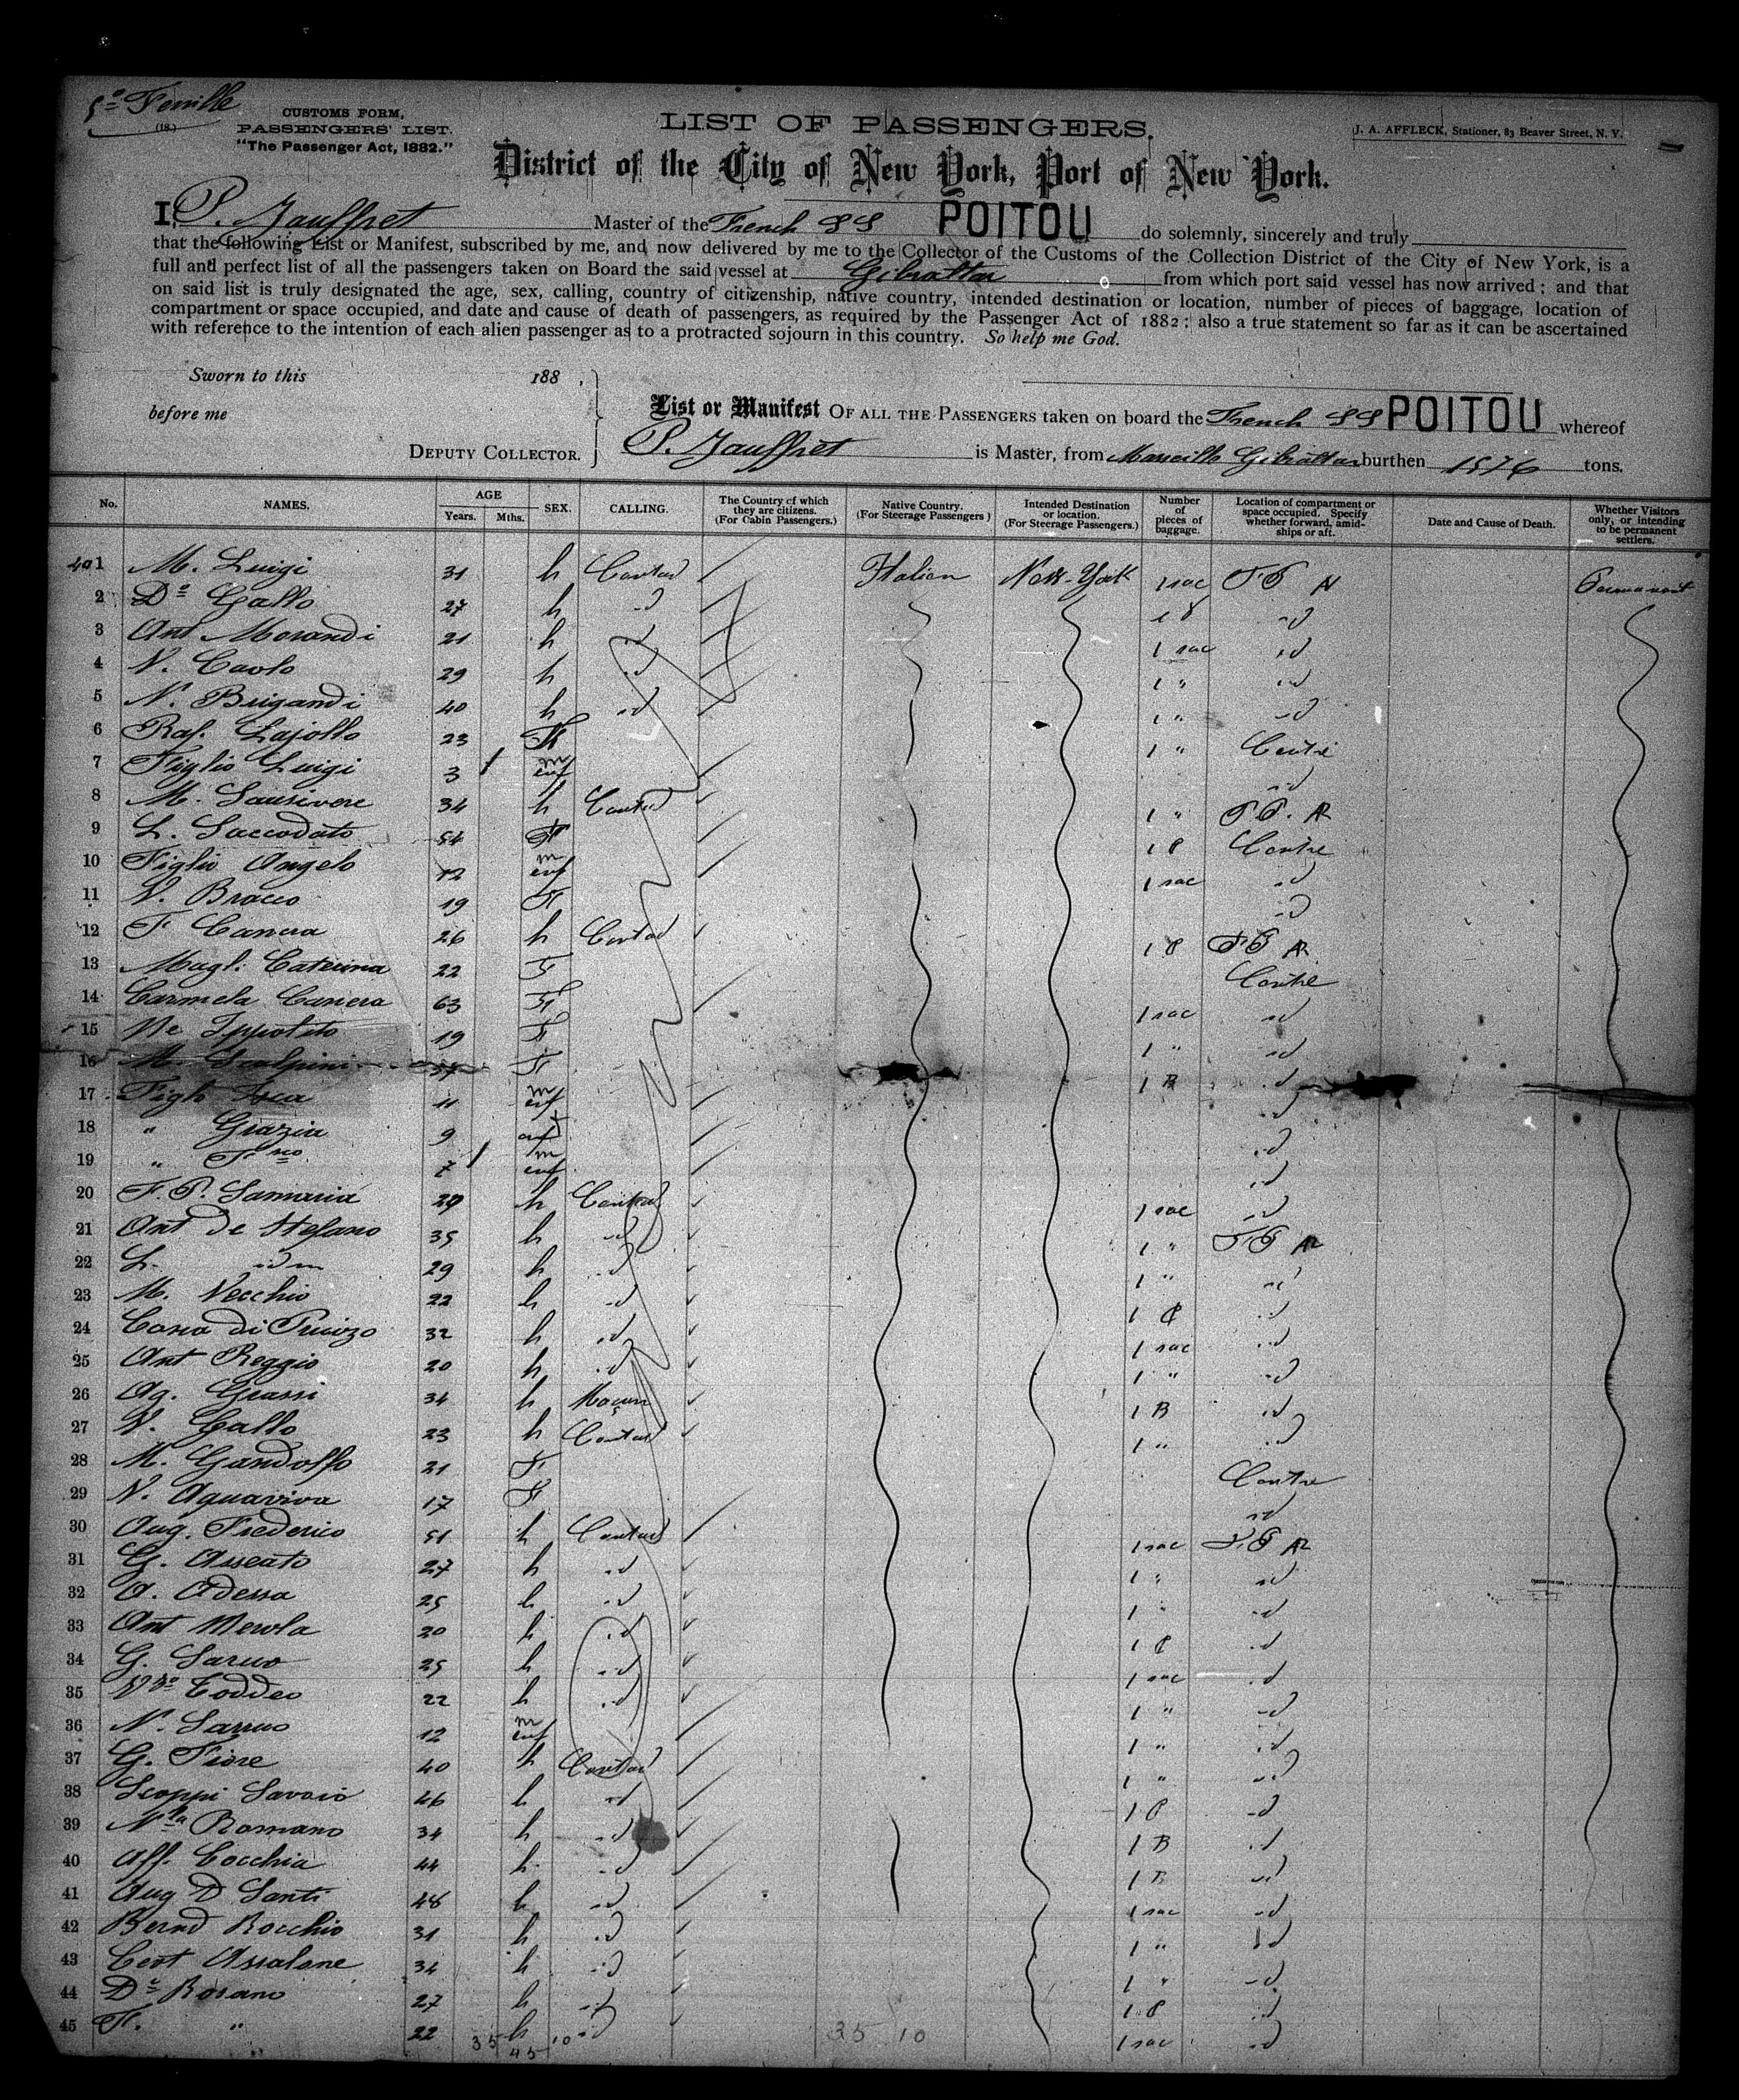 5º Feuille
(18.)
CUSTOMS FORM,
PASSENGERS' LIST.
"The Passenger Act, 1882."
LIST OF PASSENGERS.
J. A. AFFLECK, Stationer, 83 Beaver Street, N. Y.
District of the City of New York, Port of New York.
I, P. Jauffret Master of the French SS POITOU do solemnly, sincerely and truly
that the following List or Manifest, subscribed by me, and now delivered by me to the Collector of the Customs of the Collection District of the City of New York, is a
full and perfect list of all the passengers taken on Board the said vessel at Gibraltar from which port said vessel has now arrived; and that
on said list is truly designated the age, sex, calling, country of citizenship, native country, intended destination or location, number of pieces of baggage, location of
compartment or space occupied, and date and cause of death of passengers, as required by the Passenger Act of 1882; also a true statement so far as it can be ascertained
with reference to the intention of each alien passenger as to a protracted sojourn in this country. So help me God.
Sworn to this 188 .
before me
DEPUTY COLLECTOR.
List or Manifest OF ALL THE PASSENGERS taken on board the French SS POITOU whereof
P. Jauffret is Master, from Marseille Gibraltar burthen 1576 tons.
No. NAMES. AGE Years. Mths. SEX. CALLING. The Country of which they are citizens. (For Cabin Passengers.) Native Country. (For Steerage Passengers) Intended Destination or location. (For Steerage Passengers.) Number of pieces of baggage. Location of compartment or space occupied. Specify whether forward, amidships or aft. Date and Cause of Death. Whether Visitors only, or intending to be permanent settlers.
401 M. Luigi 31 h Contad Italien New-York 1 sac Permanent
2 Dº Gallo 27 h id id
3 Ant Morandi 21 h id 1 sac id
4 N. Caolo 29 h id 1 " id
5 N. Brigandi 40 h id 1 " id
6 Raf. Lajollo 23 1 " Centre
7 Figlio Luigi 3 m enf id
8 M. Sansivere 34 h Contad 1 "
9 L. Saccodato 54 F Centre
10 Figlio Angelo 12 m enf 1 sac id
11 N. Bracco 19 F id
12 F Canera 26 h Contad
13 Magl. Caterina 22 F Centre
14 Carmela Canera 63 F 1 sac id
15 Ne Ippolito 19 F 1 " id
16 M. Scalpini F 1 B id
17 Figli 11 m enf id
18 " Grazia 9 enf id
19 " Fsco 7 m enf id
20 F. P. Samaria 29 h Contad 1 sac id
21 Ant de Stefano 35 h id 1 "
22 L. idm 29 h id 1 " id
23 M. Vecchio 22 h id id
24 32 h id 1 sac id
25 Ant Reggio 20 h id 1 " id
26 Ag. Grassi 34 h Maçon 1 B id
27 N. Gallo 23 h Contad 1 " id
28 M. Gandolfo 21 F Centre
29 N. Aquaviva 17 F id
30 Aug. Frederico 51 h Contad 1 sac
31 G. Asseato 27 h id 1 " id
32 A. Adessa 25 h id 1 " id
33 Ant Merola 20 h id id
34 G. Saruo 25 h id 1 sac id
35 Toddeo 22 h id 1 " id
36 N. Sarruo 12 m enf 1 " id
37 G. Fiore 40 h Contad 1 " id
38 Scoppi Savoio 46 h id id
39 Romano 34 h id 1 B id
40 Aff. Cocchia 44 h id 1 B id
41 Aug D Santi 48 h id 1 sac id
42 Bernd Rocchio 31 h id 1 " id
43 Assalone 34 h id 1 " id
44 Dº Rosano 27 h id id
45 F. " 22 h id 1 sac id
35 10
45
35 10